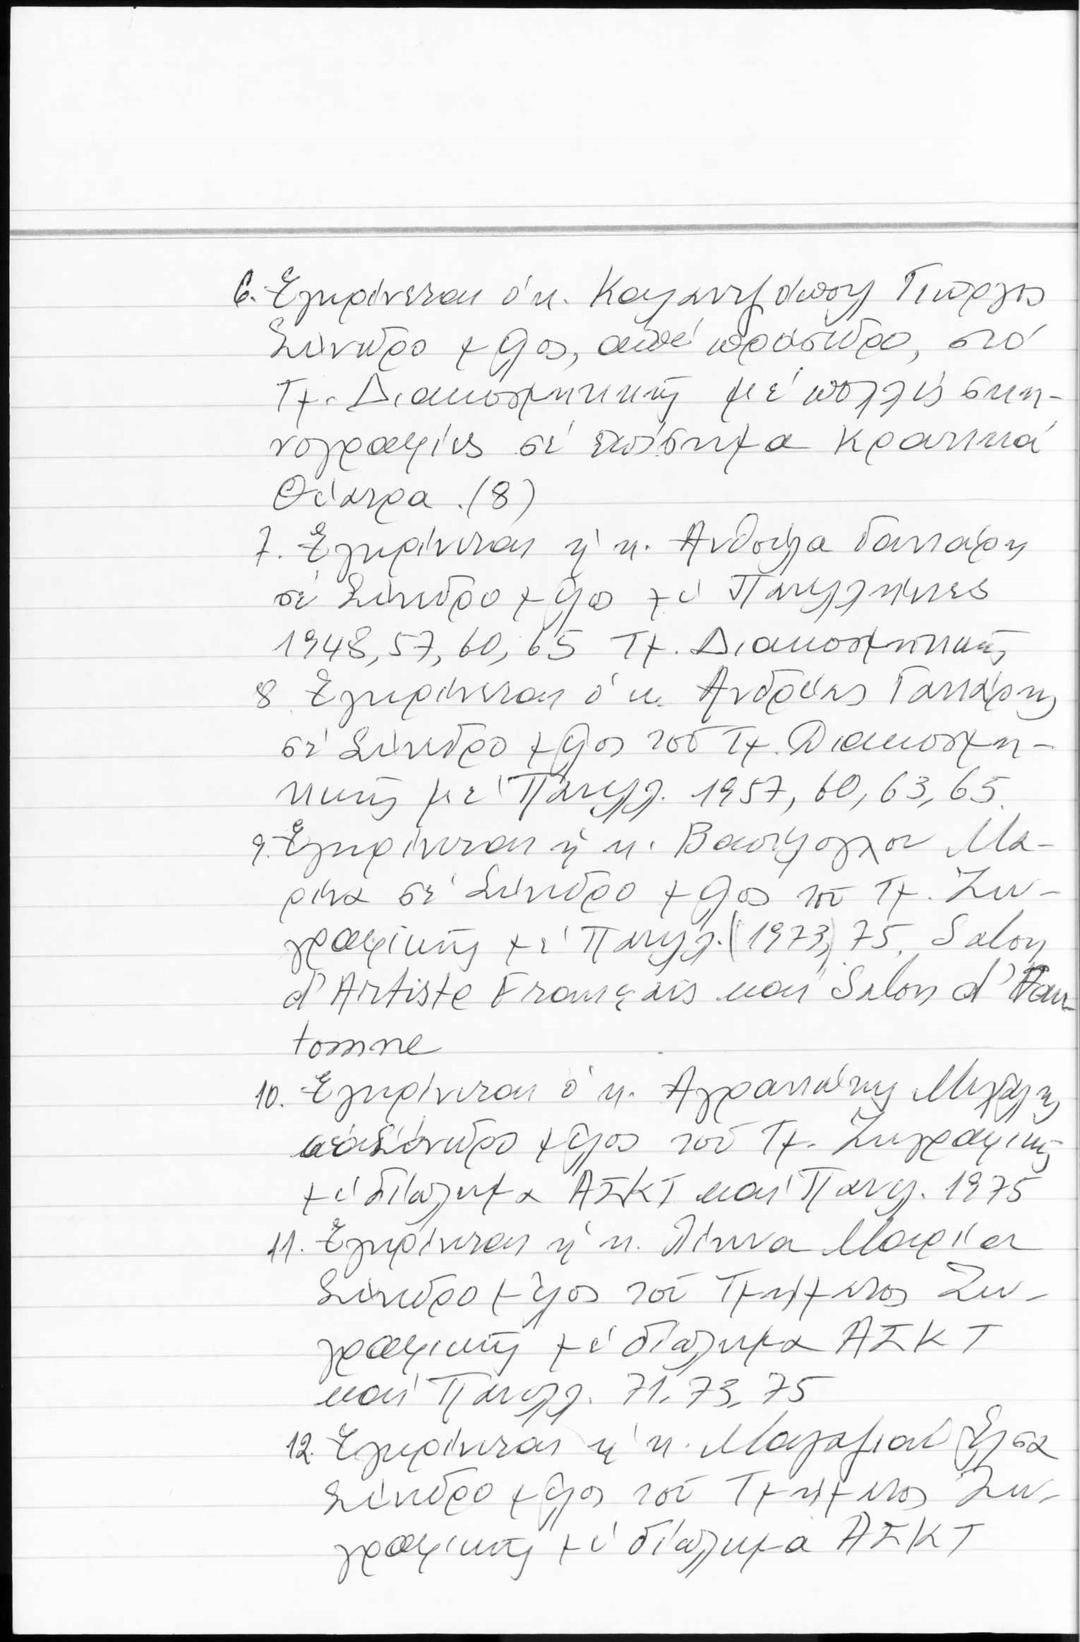 6. Ἐγκρίνεται ὁ κ. Γιῶργος
Σύνεδρο μέλος, ἀπό πρόσεδρο, στό
Τμ. Διακοσμητικῆς μέ πολλές σκη-
νογραφίες σέ ἐπίσημα Κρατικά
Θέατρα. (8)
7. Ἐγκρίνεται ἡ κ. Ἀνθούλα Γανιάρη
σέ Σύνεδρο μέλος μέ Πανελλήνιες
1948, 57, 60, 65 Τμ. Διακοσμητικῆς
8 Ἐγκρίνεται ὁ κ. Ἀνδρέας Γανιάρης
σέ Σύνεδρο μέλος τοῦ Τμ. Διακοσμη-
τικῆς μέ Πανελλ. 1957, 60, 63, 65.
9. Ἐγκρίνεται ἡ κ. Μα-
ρίνα σέ Σύνεδρο μέλος τοῦ Τμ. Ζω-
γραφικῆς μέ Πανελλ. (1973) 75, Salon
d'Artiste Français καί Salon d'Au-
tomne
10. Ἐγκρίνεται ὁ κ. Μιχάλης
Σύνεδρο μέλος τοῦ Τμ. Ζωγραφικῆς
μέ δίπλωμα ΑΣΚΤ καί Πανελ. 1975
11. Ἐγκρίνεται ἡ κ. Μαρία
Σύνεδρο μέλος τοῦ Τμήματος Ζω-
γραφικῆς μέ δίπλωμα ΑΣΚΤ
καί Πανελλ. 71, 73, 75
12. Ἐγκρίνεται ἡ κ. Ἔλσα
Σύνεδρο μέλος τοῦ Τμήματος Ζω-
γραφικῆς μέ δίπλωμα ΑΣΚΤ